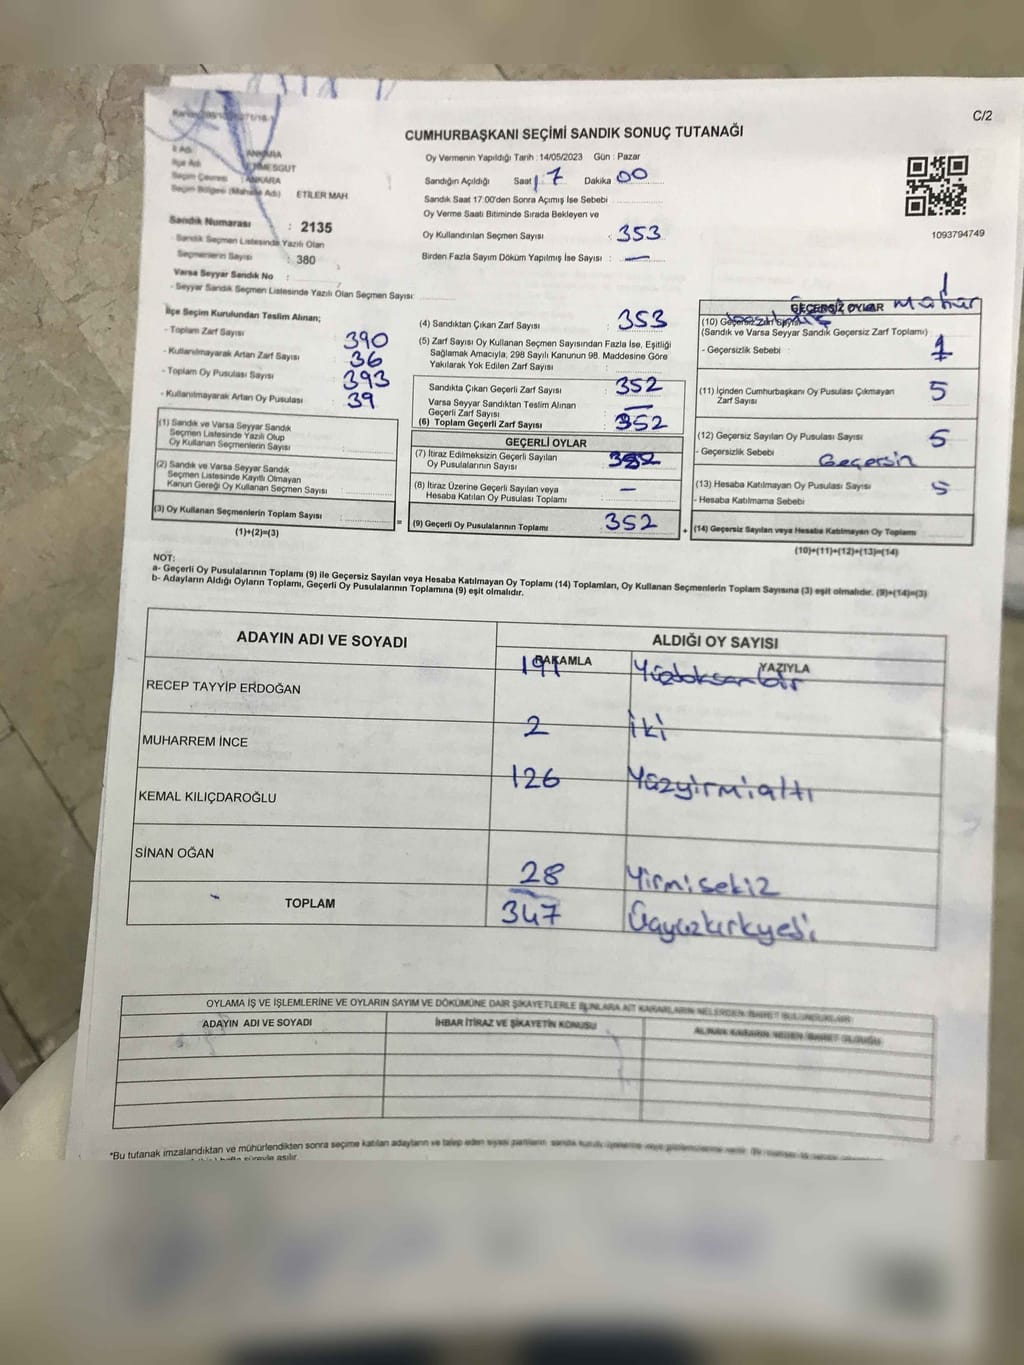 C/2
CUMHURBAŞKANI SEÇİMİ SANDIK SONUÇ TUTANAĞI
İl Adı : ANKARA
İlçe Adı : ETİMESGUT
Seçim Çevresi : ANKARA
Seçim Bölgesi (Mahalle Adı) ETİLER MAH
Sandık Numarası : 2135
- Sandık Seçmen Listesinde Yazılı Olan
Seçmenlerin Sayısı : 380
Varsa Seyyar Sandık No :
- Seyyar Sandık Seçmen Listesinde Yazılı Olan Seçmen Sayısı:
Oy Vermenin Yapıldığı Tarih : 14/05/2023 Gün : Pazar
Sandığın Açıldığı Saat 17 Dakika 00
Sandık Saat 17.00'den Sonra Açımış İse Sebebi
Oy Verme Saati Bitiminde Sırada Bekleyen ve
Oy Kullandırılan Seçmen Sayısı : 353
Birden Fazla Sayım Döküm Yapılmış İse Sayısı : —
1093794749
İlçe Seçim Kurulundan Teslim Alınan;
- Toplam Zarf Sayısı 390
- Kullanılmayarak Artan Zarf Sayısı 36
- Toplam Oy Pusulası Sayısı 393
- Kullanılmayarak Artan Oy Pusulası 39
(1) Sandık ve Varsa Seyyar Sandık
Seçmen Listesinde Yazılı Olup
Oy Kullanan Seçmenlerin Sayısı
(2) Sandık ve Varsa Seyyar Sandık
Seçmen Listesinde Kayıtlı Olmayan
Kanun Gereği Oy Kullanan Seçmen Sayısı
(3) Oy Kullanan Seçmenlerin Toplam Sayısı :
(1)+(2)=(3)
(4) Sandıktan Çıkan Zarf Sayısı : 353
(5) Zarf Sayısı Oy Kullanan Seçmen Sayısından Fazla İse, Eşitliği
Sağlamak Amacıyla, 298 Sayılı Kanunun 98. Maddesine Göre
Yakılarak Yok Edilen Zarf Sayısı :
Sandıkta Çıkan Geçerli Zarf Sayısı : 352
Varsa Seyyar Sandıktan Teslim Alınan
Geçerli Zarf Sayısı : —
(6) Toplam Geçerli Zarf Sayısı : 352
GEÇERLİ OYLAR
(7) İtiraz Edilmeksizin Geçerli Sayılan
Oy Pusulalarının Sayısı : 352
(8) İtiraz Üzerine Geçerli Sayılan veya
Hesaba Katılan Oy Pusulası Toplamı : —
= (9) Geçerli Oy Pusulalarının Toplamı 352
GEÇERSİZ OYLAR
(10) Geçersiz Zarf Sayısı
(Sandık ve Varsa Seyyar Sandık Geçersiz Zarf Toplamı)
- Geçersizlik Sebebi 1
(11) İçinden Cumhurbaşkanı Oy Pusulası Çıkmayan
Zarf Sayısı 5
(12) Geçersiz Sayılan Oy Pusulası Sayısı 5
- Geçersizlik Sebebi Geçersin
(13) Hesaba Katılmayan Oy Pusulası Sayısı 5
- Hesaba Katılmama Sebebi
+ (14) Geçersiz Sayılan veya Hesaba Katılmayan Oy Toplamı
(10)+(11)+(12)+(13)=(14)
NOT:
a- Geçerli Oy Pusulalarının Toplamı (9) ile Geçersiz Sayılan veya Hesaba Katılmayan Oy Toplamı (14) Toplamları, Oy Kullanan Seçmenlerin Toplam Sayısına (3) eşit olmalıdır. (9)+(14)=(3)
b- Adayların Aldığı Oyların Toplamı, Geçerli Oy Pusulalarının Toplamına (9) eşit olmalıdır.
ADAYIN ADI VE SOYADI ALDIĞI OY SAYISI
RAKAMLA YAZIYLA
RECEP TAYYİP ERDOĞAN 191 Yüzdoksanbir
MUHARREM İNCE 2 İki
KEMAL KILIÇDAROĞLU 126 Yüzyirmialtı
SİNAN OĞAN 28 Yirmisekiz
TOPLAM 347 Üçyüzkırkyedi
OYLAMA İŞ VE İŞLEMLERİNE VE OYLARIN SAYIM VE DÖKÜMÜNE DAİR ŞİKAYETLERLE BUNLARA AİT KARARLARIN NELERDEN İBARET BULUNDUKLARI
ADAYIN ADI VE SOYADI İHBAR İTİRAZ VE ŞİKAYETİN KONUSU ALINAN KARARIN NEDEN İBARET OLDUĞU
*Bu tutanak imzalandıktan ve mühürlendikten sonra seçime katılan adayların ve talep eden siyasi partilerin